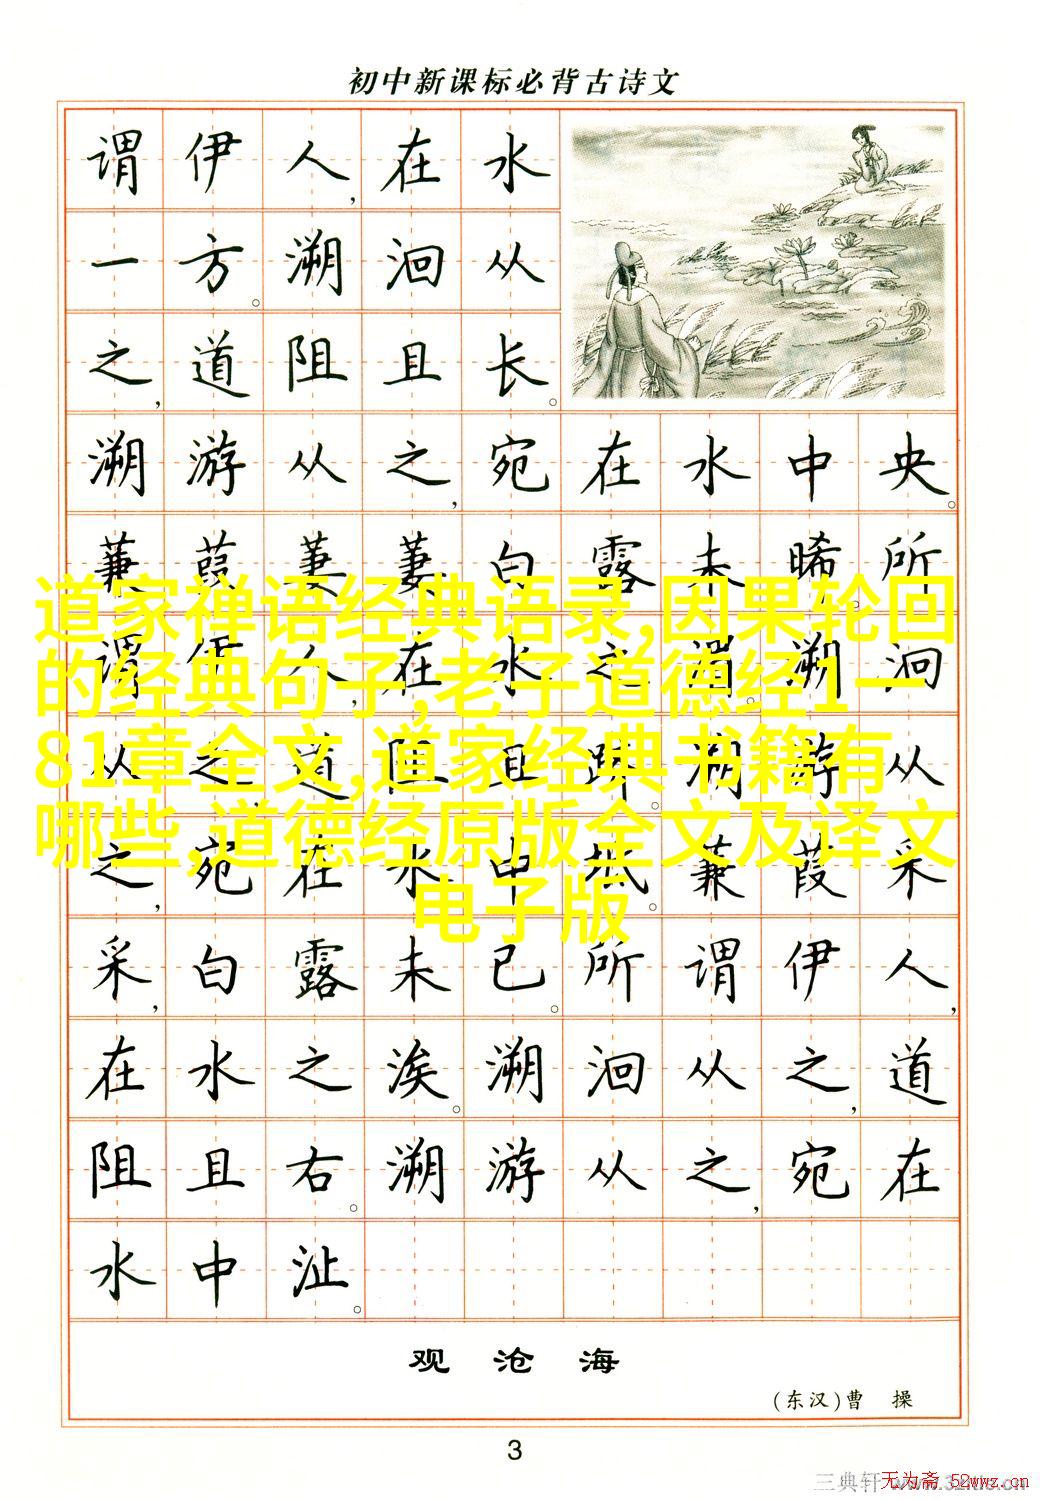 初中新课标必背古诗文
谓伊人,在水
一方。溯洄从
之,道阻且长。
溯游从之,宛在水中央。
蒹葭萋萋,白露未晞。所
谓伊人,在水之湄。溯洄
从之,道阻且跻。溯游从
之,宛在水中坻。蒹葭采
采,白露未已。所谓伊人,
在水之涘。溯洄从之,道
阻且右。溯游从之,宛在
水中沚。
道家禅语经典语录,因果轮回
的经典句子,老子道德经1一
81章全文,道家经典书籍有
哪些,道德经原版全文及译文
电子版
观沧海
(东汉)曹操
3
三典轩
无为斋 52wwz.cn